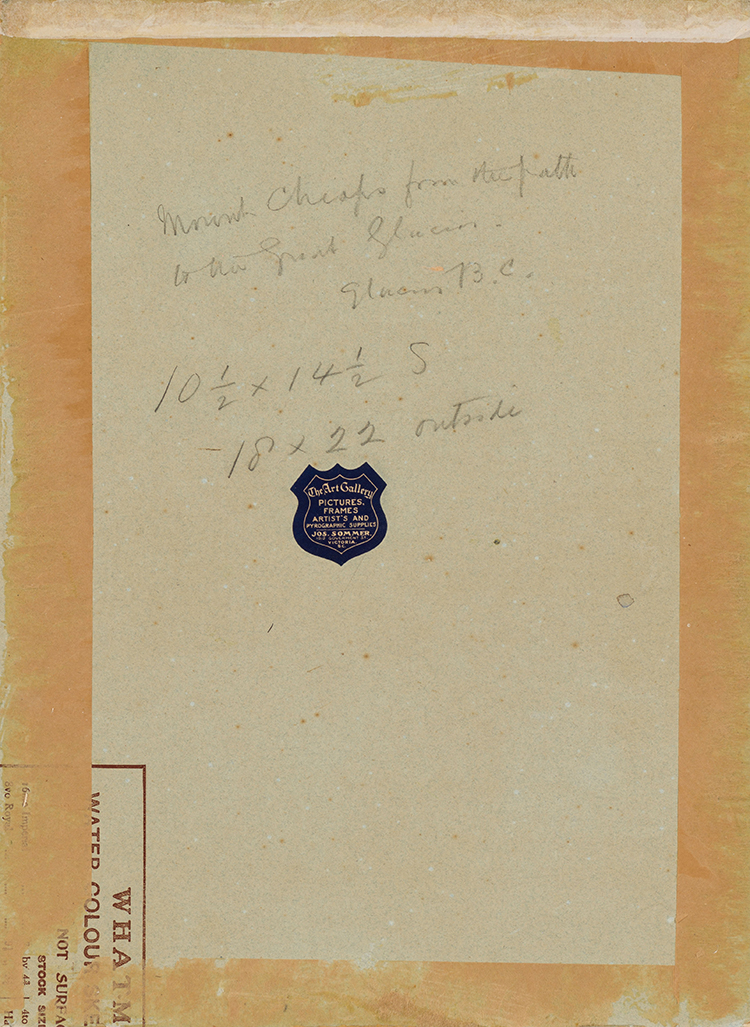 Mount Cheops from the path
to the Great Glacier.
Glacier B.C.
10 1/2 x 14 1/2 S
18 x 22 outside
The Art Gallery
PICTURES.
FRAMES
ARTIST'S AND
PYROGRAPHIC SUPPLIES
JOS. SOMMER.
GOVERNMENT ST.
VICTORIA
B.C.
WHATM
WATER COLOUR SKE
NOT SURFA
STOCK SIZE
by 4to
16 Imperial
8vo Royal